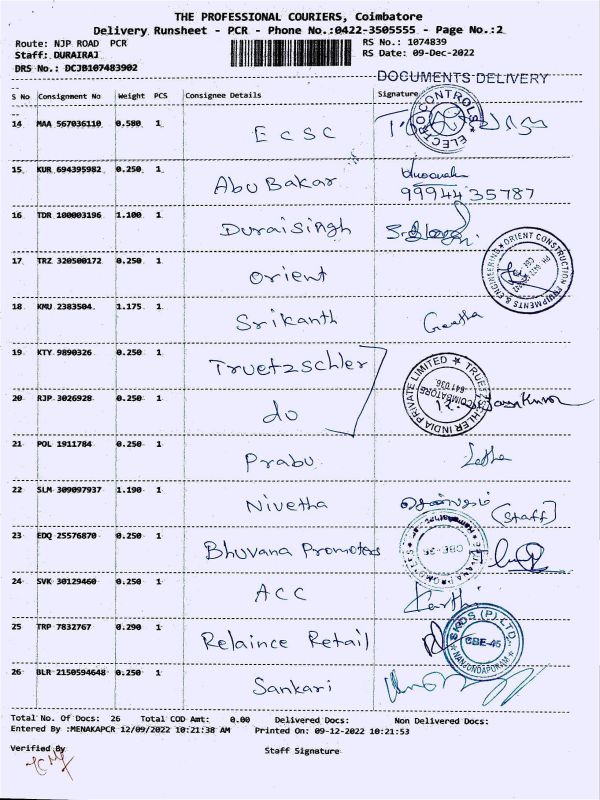 THE PROFESSIONAL COURIERS, Coimbatore
Delivery Runsheet - PCR - Phone No.:0422-3505555 - Page No.:2
Route: NJP ROAD PCR
RS No.: 1074839
Staff: DURAIRAJ
RS Date: 09-Dec-2022
DRS No.: DCJB107483902
DOCUMENTS DELIVERY
S No Consignment No Weight PCS Consignee Details Signature
14 MAA 567036110 0.580 1 ECSC
ELECTRO CONTROLS
15 KUR 694395982 0.250 1 Abu Bakar
9994435787
16 TDR 100003196 1.100 1 Duraisingh
17 TRZ 320500172 0.250 1 Orient
ORIENT CONSTRUCTION EQUIPMENTS & ENGINEERING
18 KMU 2383504 1.175 1 Srikanth Geetha
19 KTY 9890326 0.250 1 Truetzschler
20 RJP 3026928 0.250 1 do
COIMBATORE
641 036
21 POL 1911784 0.250 1 Prabu Latha
22 SLM 309097937 1.190 1 Nivetha
(Staff)
23 EDQ 25576870 0.250 1 Bhuvana Promoters
CBE-36
24 SVK 30129460 0.250 1 ACC
25 TRP 7832767 0.290 1 Relaince Retail
SKDS (P) LTD.
CBE-45
NANJUNDAPURAM
26 BLR 2150594648 0.250 1 Sankari
Total No. Of Docs: 26 Total COD Amt: 0.00 Delivered Docs: Non Delivered Docs:
Entered By :MENAKAPCR 12/09/2022 10:21:38 AM Printed On: 09-12-2022 10:21:53
Verified By
Staff Signature